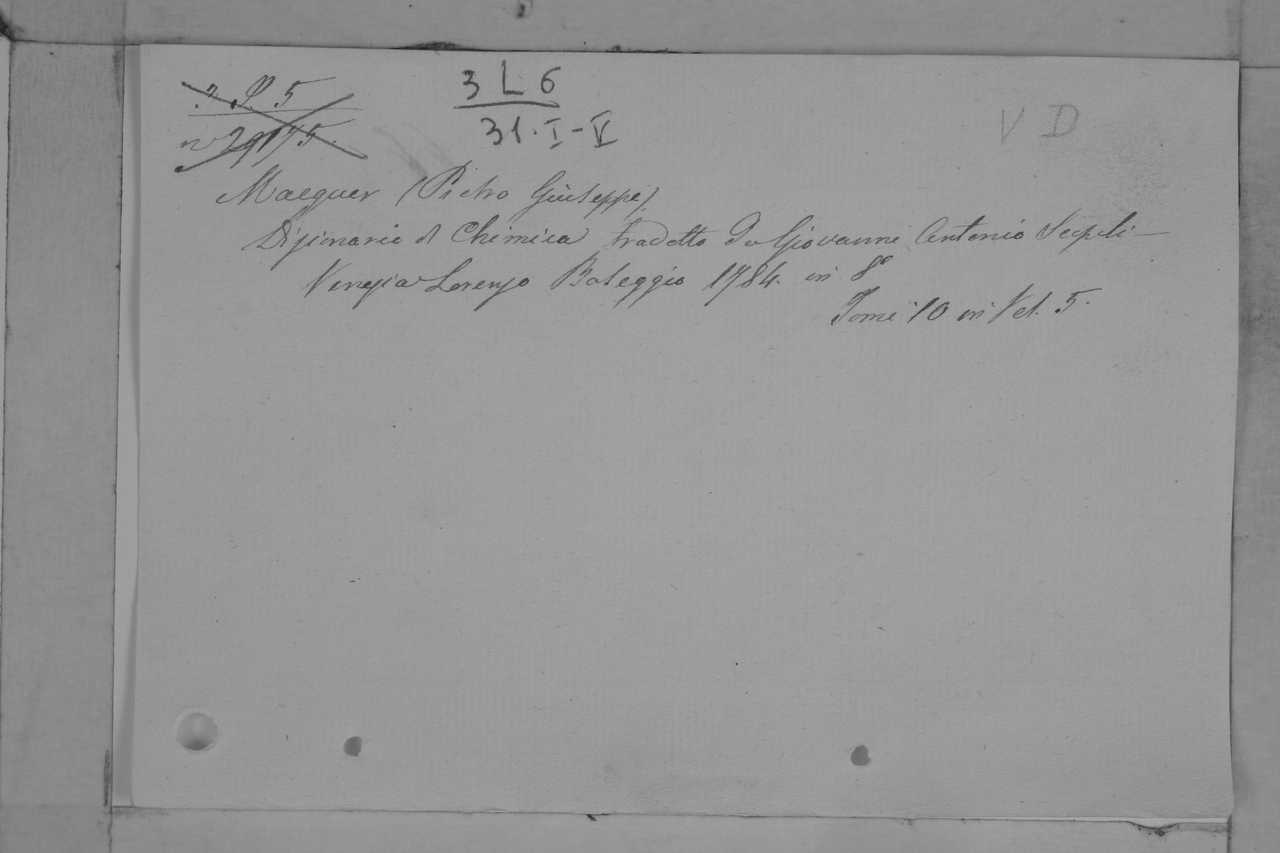 3 L 6
31. I-V
V D
Macquer (Pietro Giuseppe)
Dizionario di Chimica tradotto da Giovanni Antonio Scopoli
Venezia Lorenzo Baseggio 1784. in 8º
Tomi 10 in Vol. 5.